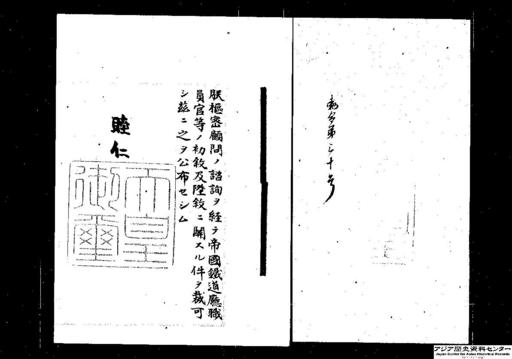 勅令第三十号
朕樞密顧問ノ諮詢ヲ経テ帝國鐵道廳職
員官等ノ初敘及陞敘ニ關スル件ヲ裁可
シ茲ニ之ヲ公布セシム
睦仁
天皇御璽
アジア歴史資料センター
Japan Center for Asian Historical Records